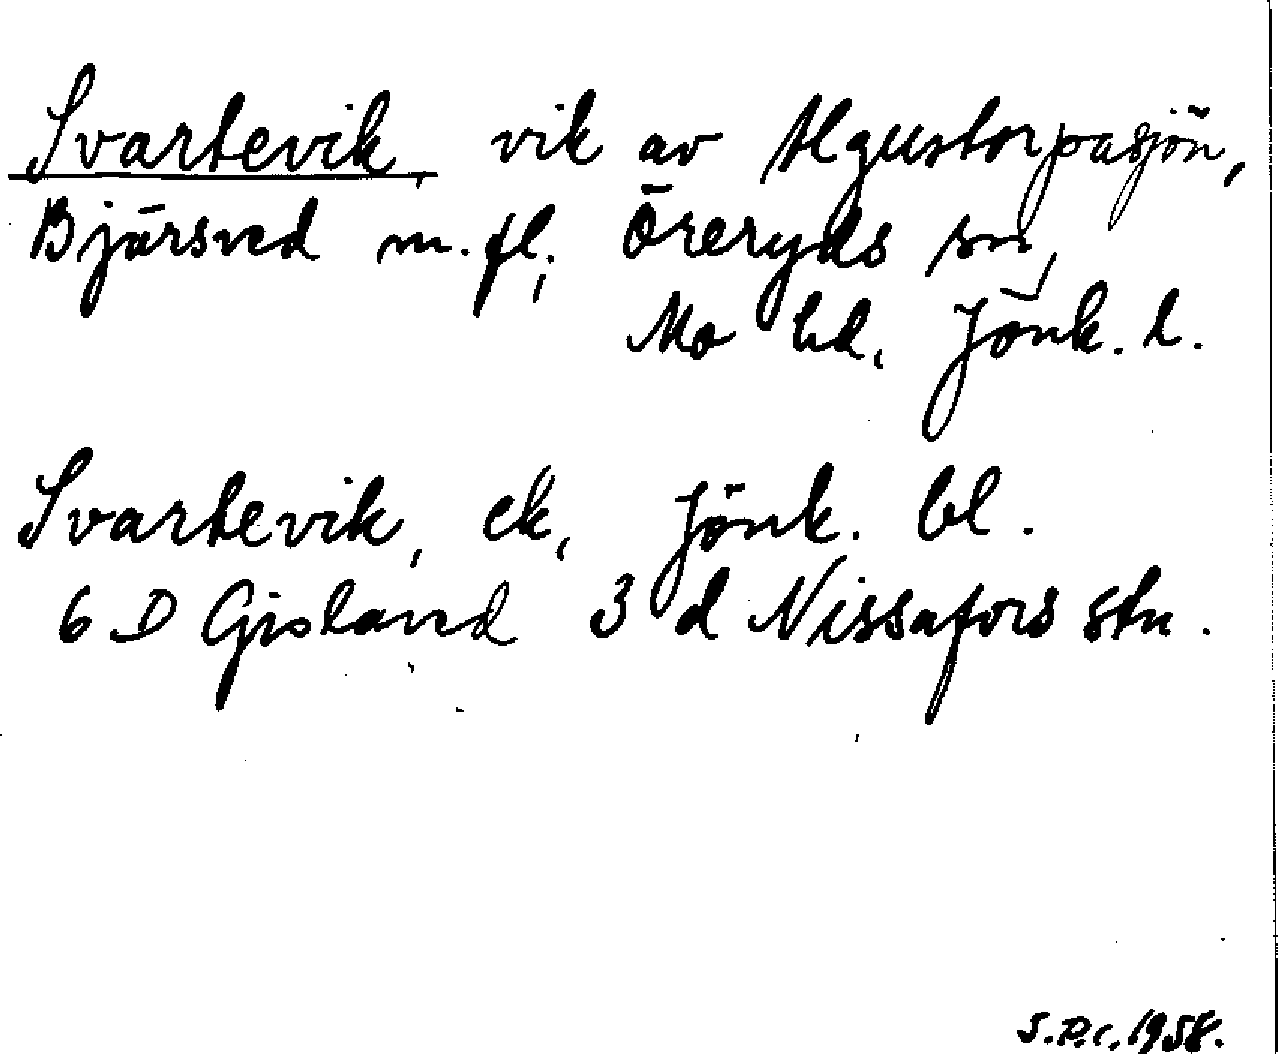 Svartevik, vik av Algustorpasjön,
Bjärsved m.fl., Öreryds sn,
Mo hd, Jönk. l.
Svartevik, ek, Jönk. bl.
6 D Gisland 3 d Nissafors stn.
S.P.C. 1958.